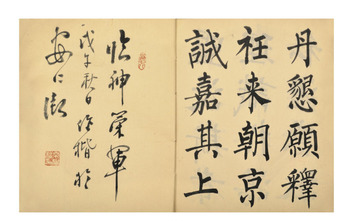 丹懇願釋
在来朝京
誠嘉其上
临神策軍
戊午秋日作楷於
安仁